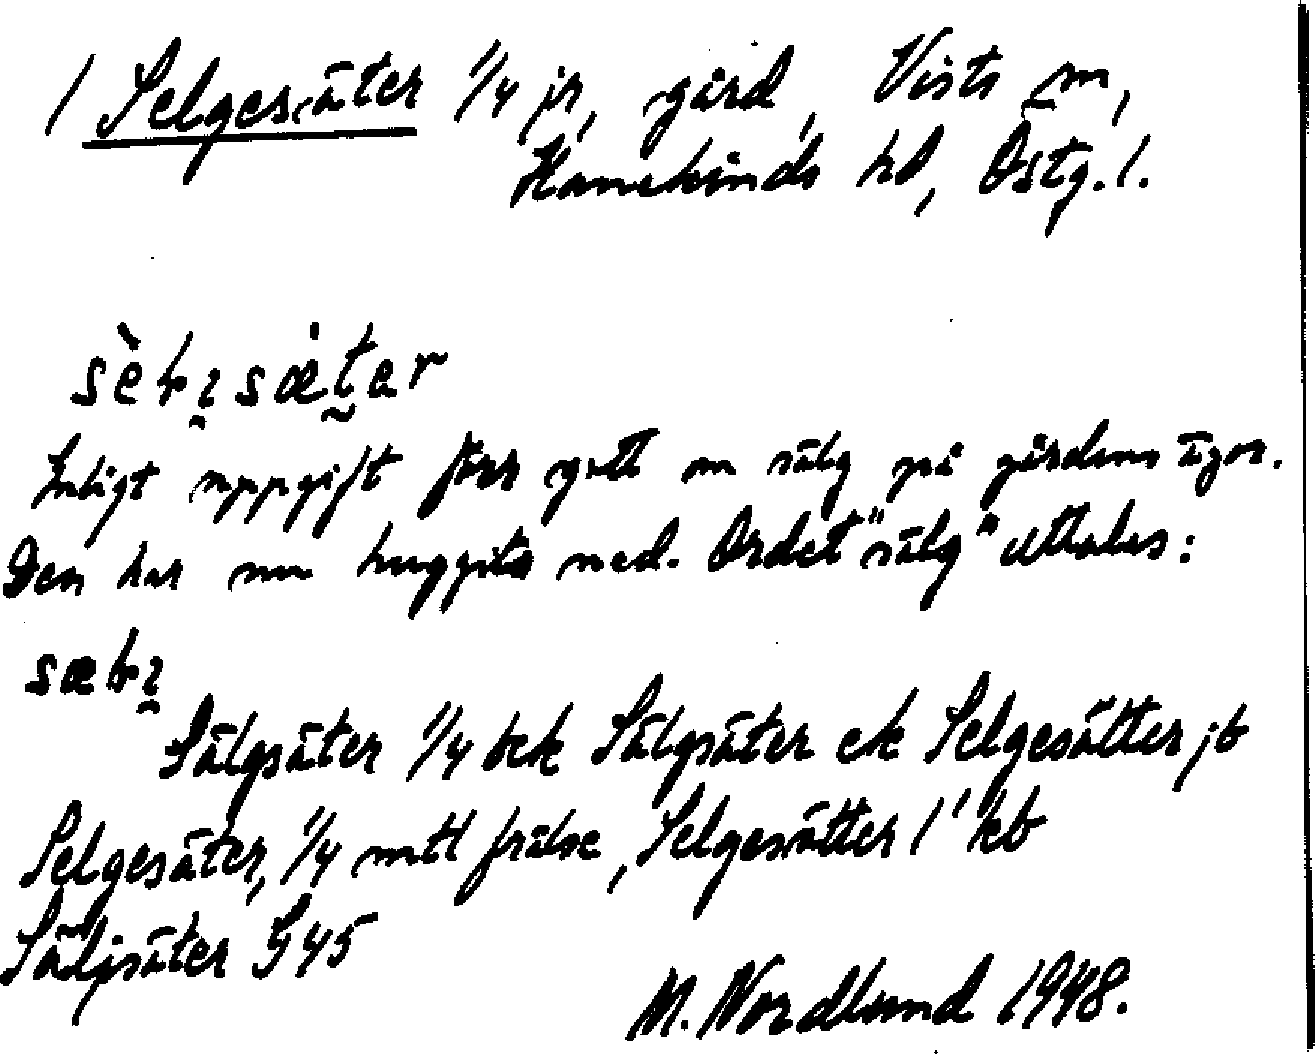 1 Selgesäter 1/4 jr, gård, Vists sn,
Hanekinds hd, Östg. l.
Enligt uppgift förr gott om sälg på gårdens ägor.
Den har nu huggits ned. Ordet "sälg" uttalas:
Sälgsäter 1/4 bek Sälgsäter ek Selgesätter jb
Selgesäter, 1/4 mtl frälse, Selgesätter 1' kb
Säljsäter G45
M. Nordlund 1948.